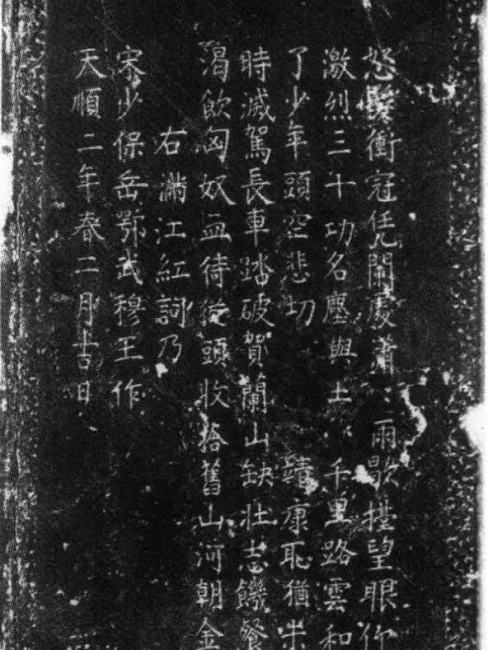 怒髮衝冠凭闌處蕭〻雨歇擡望眼仰
激烈三十功名塵與土八千里路雲和
了少年頭空悲切　靖康恥猶未
時滅駕長車踏破賀蘭山缺壯志饑餐
渴飲匈奴血待從頭收拾舊山河朝金
右滿江紅詞乃
宋少保岳鄂武穆王作
天順二年春二月吉日